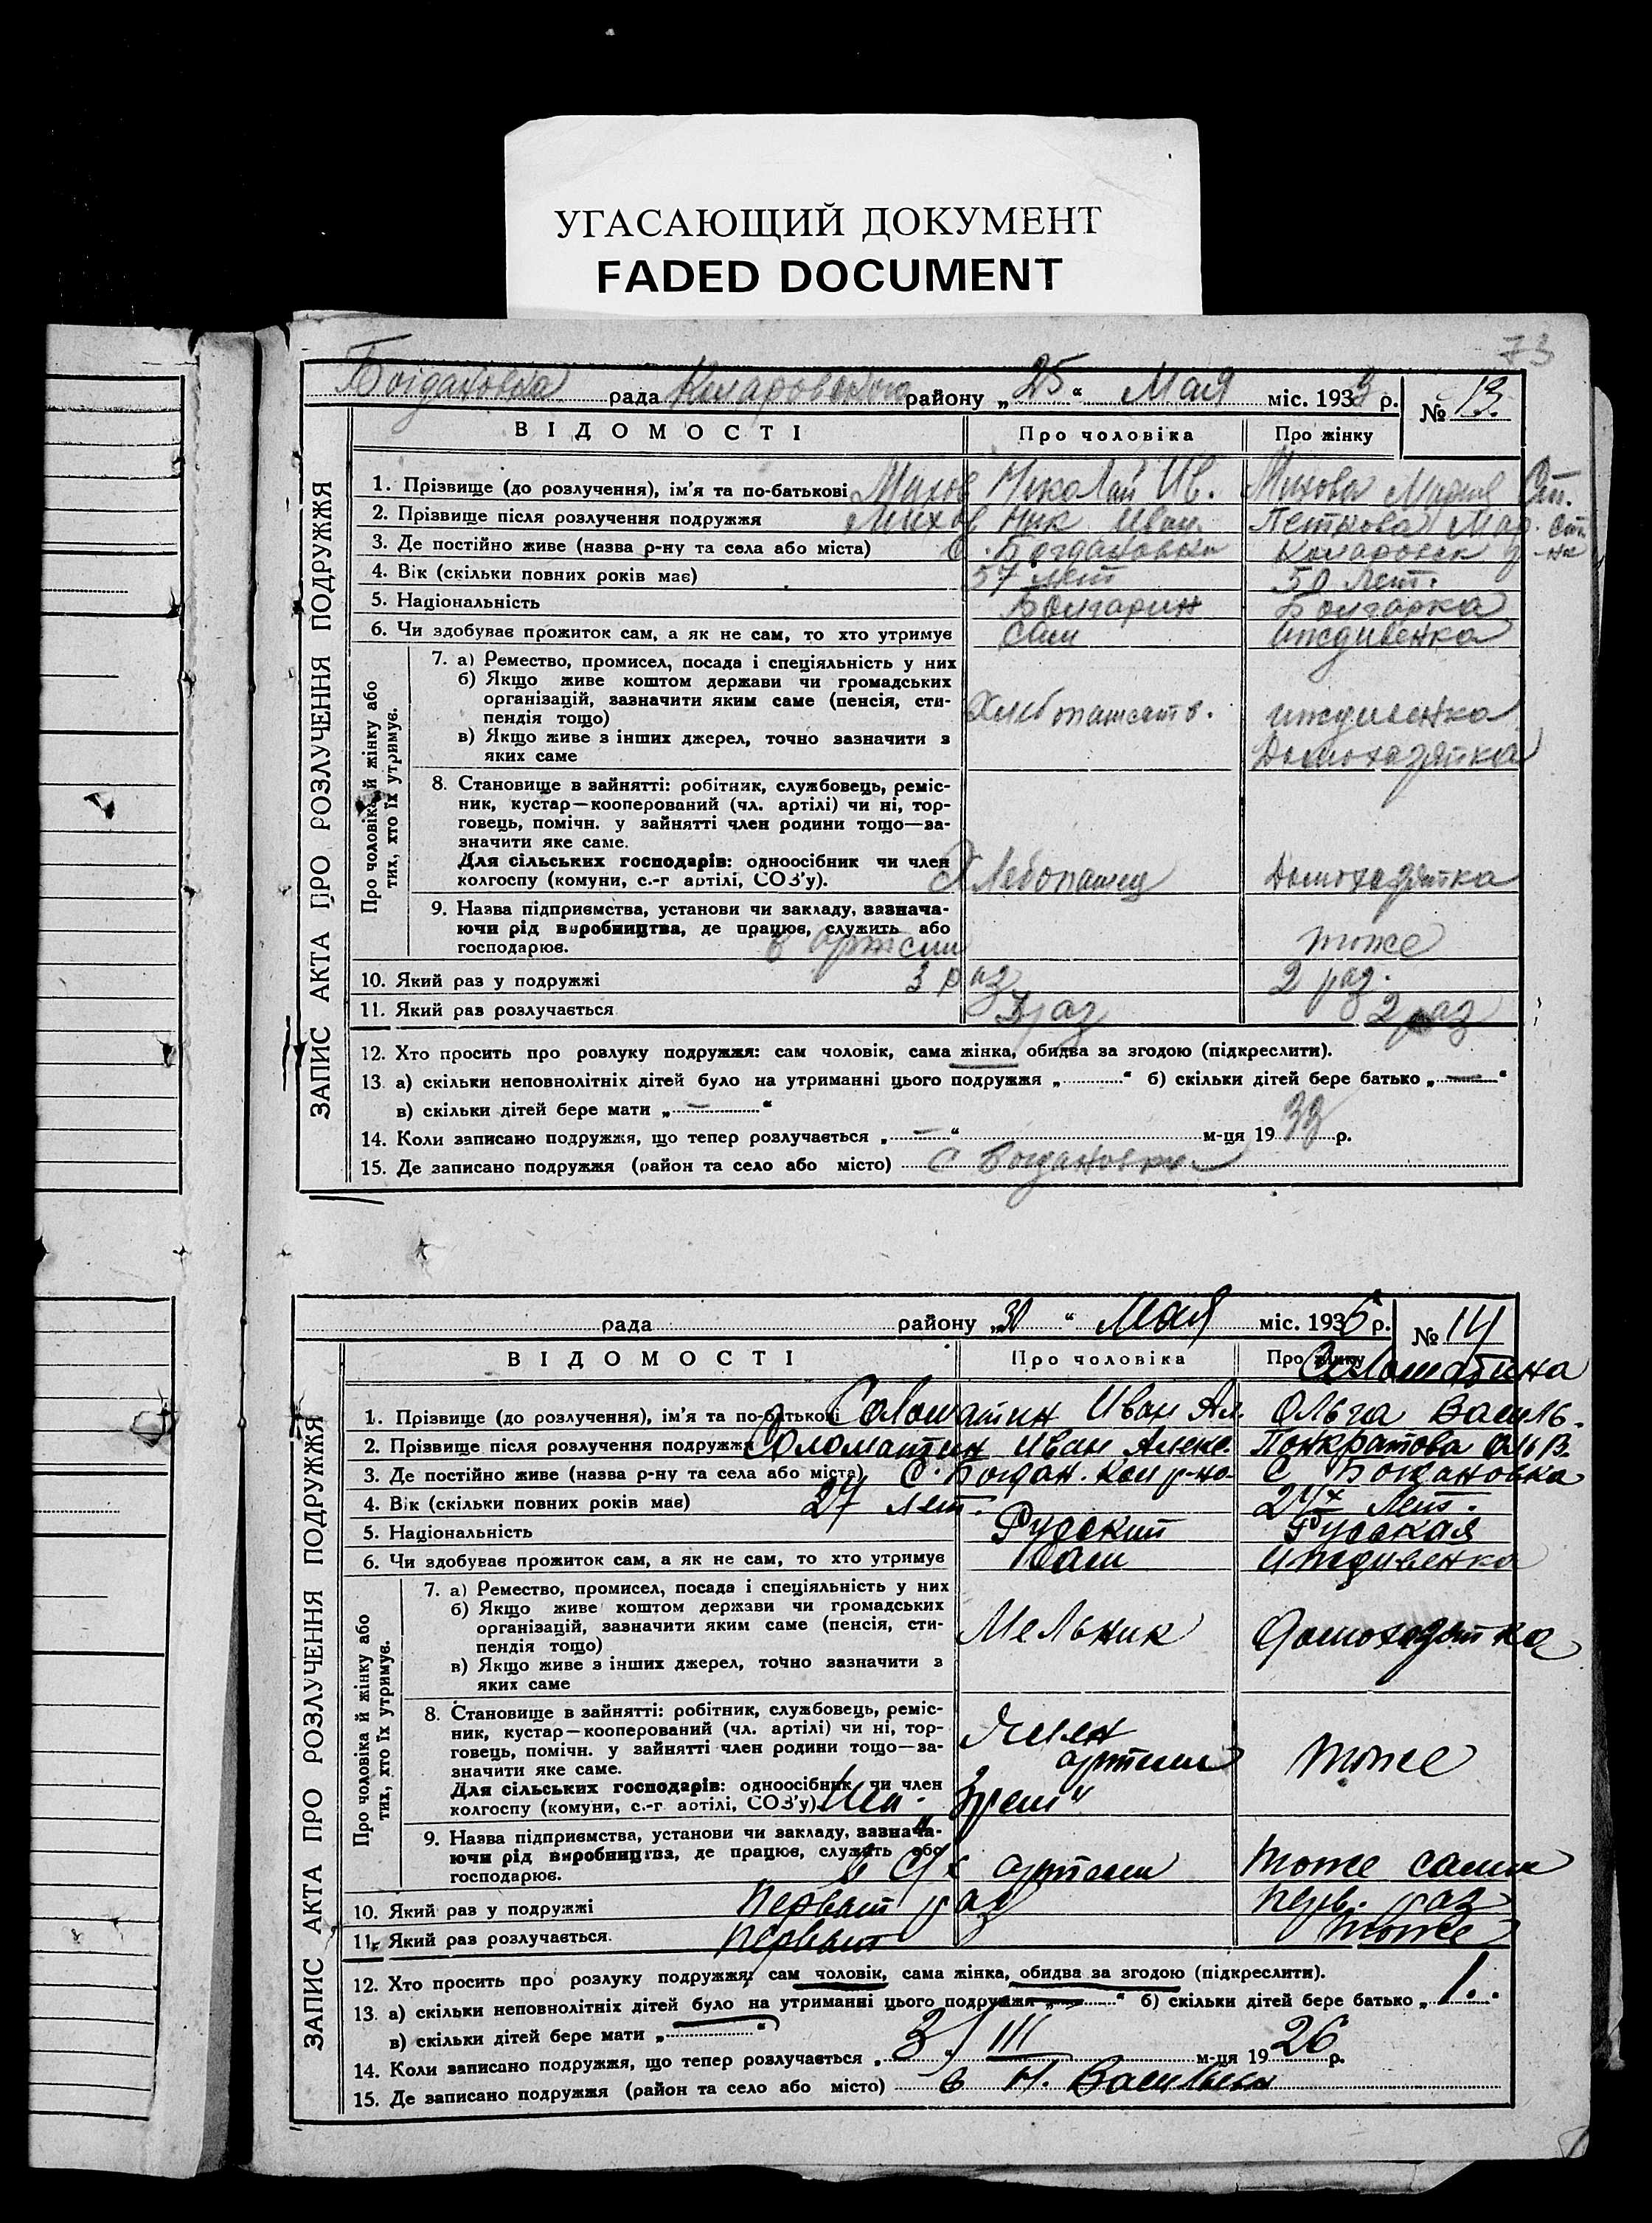 УГАСАЮЩИЙ ДОКУМЕНТ
FADED DOCUMENT
73
Богдановка рада Коларовского району „25“ Мая міс. 1933 р. № 13.
ВІДОМОСТІ Про чоловіка Про жінку
ЗАПИС АКТА ПРО РОЗЛУЧЕННЯ ПОДРУЖЖЯ
1. Прізвище (до розлучення), ім'я та по-батькові Михов Николай Ив. Михова Мария Ст.
2. Прізвище після розлучення подружжя Михов Ник Иван. Петкова Мар. Ст.
3. Де постійно живе (назва р-ну та села або міста) С. Богдановка Коларовск р-на
4. Вік (скільки повних років має) 57 лет 50 лет.
5. Національність Болгарин Болгарка
6. Чи здобуває прожиток сам, а як не сам, то хто утримує Сам иждивенка
Про чоловіка й жінку або
тих, хто їх утримує.
7. а) Ремество, промисел, посада і спеціяльність у них
б) Якщо живе коштом держави чи громадських
організацій, зазначити яким саме (пенсія, сти-
пендія тощо) Хлебопашеств. иждивенка
в) Якщо живе з інших джерел, точно зазначити з
яких саме Домохазяйка
8. Становище в зайнятті: робітник, службовець, реміс-
ник, кустар—кооперований (чл. артілі) чи ні, тор-
говець, помічн. у зайнятті член родини тощо—за-
значити яке саме.
Для сільських господарів: одноосібник чи член
колгоспу (комуни, с.-г артілі, СОЗ'у). Хлебопашец Домохазяйка
9. Назва підприємства, установи чи закладу, зазнача-
ючи рід виробництва, де працює, служить або
господарює. в артели тоже
10. Який раз у подружжі 3 раз 2 раз.
11. Який раз розлучається 3 раз 2 раз
12. Хто просить про розлуку подружжя: сам чоловік, сама жінка, обидва за згодою (підкреслити).
13. а) скільки неповнолітніх дітей було на утриманні цього подружжя „ “ б) скільки дітей бере батько „—“
в) скільки дітей бере мати „—“
14. Коли записано подружжя, що тепер розлучається „—“ м-ця 19 р.
15. Де записано подружжя (район та село або місто) С Богдановка
рада району „30“ Мая міс. 193 р. № 14
ВІДОМОСТІ Про чоловіка Про жінку
ЗАПИС АКТА ПРО РОЗЛУЧЕННЯ ПОДРУЖЖЯ
Соломатина
1. Прізвище (до розлучення), ім'я та по-батькові Соломатин Иван Ал. Ольга Василь.
2. Прізвище після розлучення подружжя Соломатин Иван Алекс. Понкратова Оль В.
3. Де постійно живе (назва р-ну та села або міста) С. Богдан. Кол р-на С Богдановка
4. Вік (скільки повних років має) 27 лет. 24х лет.
5. Національність Русский Русская
6. Чи здобуває прожиток сам, а як не сам, то хто утримує Сам Иждивенка
Про чоловіка й жінку або
тих, хто їх утримує.
7. а) Ремество, промисел, посада і спеціяльність у них
б) Якщо живе коштом держави чи громадських
організацій, зазначити яким саме (пенсія, сти-
пендія тощо) Мельник Домохазяйка
в) Якщо живе з інших джерел, точно зазначити з
яких саме
8. Становище в зайнятті: робітник, службовець, реміс-
ник, кустар—кооперований (чл. артілі) чи ні, тор-
говець, помічн. у зайнятті член родини тощо—за-
значити яке саме. Член артели тоже
Для сільських господарів: одноосібник чи член
колгоспу (комуни, с.-г артілі, СОЗ'у).
9. Назва підприємства, установи чи закладу, зазнача-
ючи рід виробництва, де працює, служить або
господарює. в С/х артели тоже самое
10. Який раз у подружжі первый раз перв. раз
11. Який раз розлучається. первый тоже
12. Хто просить про розлуку подружжя: сам чоловік, сама жінка, обидва за згодою (підкреслити).
13. а) скільки неповнолітніх дітей було на утриманні цього подружжя „—“ б) скільки дітей бере батько „1.
в) скільки дітей бере мати „ “
14. Коли записано подружжя, що тепер розлучається „3“ III м-ця 1926 р.
15. Де записано подружжя (район та село або місто) в Н. Васильевк